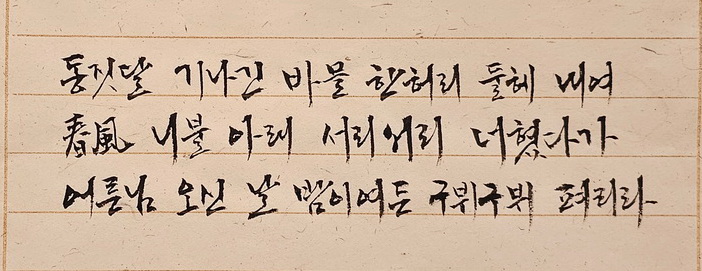 동짓달 기나긴 바믈 한허리 둘헤 내여
春風 니불 아래 서리서리 너혔다가
어른님 오신 날 밤이여든 구뷔구뷔 펴리라